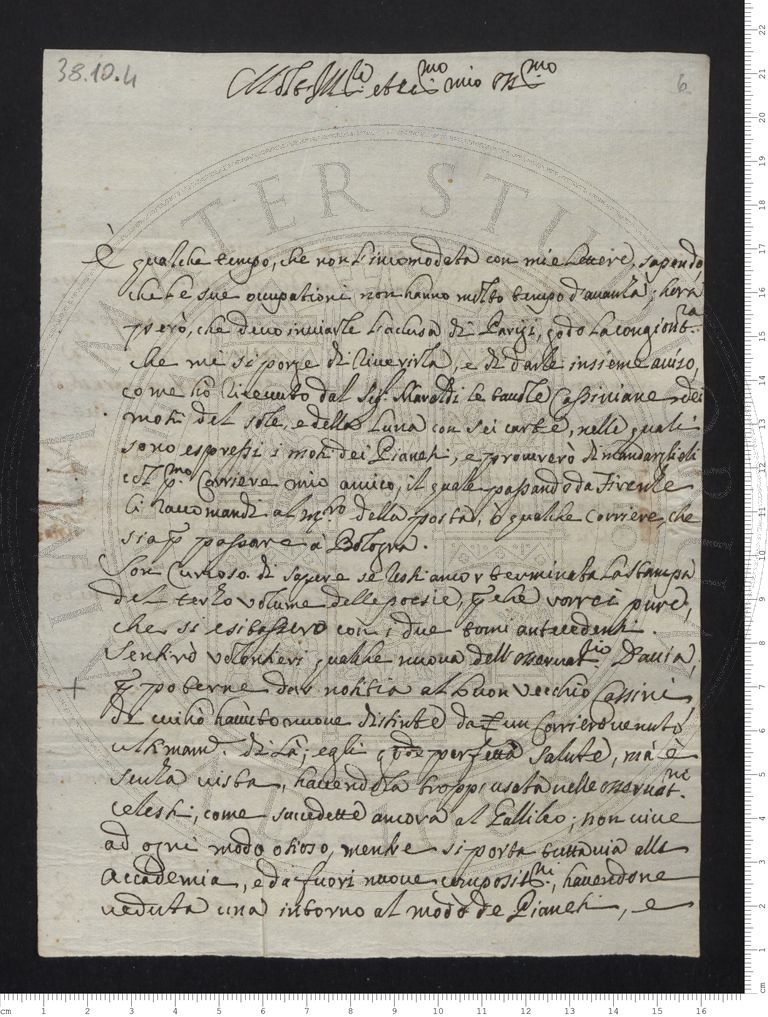 38.10.4
6
Molt Ill.re et Ecc.mo mio Sig.mo
È qualche tempo, che non l'incomodata con mie Lettere, sapendo,
che le sue occupationi non hanno molto tempo d'avanzà; hora
però, che devo inviarle l'aclusa di Parigi, godo la congiont.ra
che me si porge di riverirla, e di darle insieme aviso,
come hò ricevuto dal Sig. Maraldi le tavole Cassiniane dei
moti del sole, e della Luna con sei carte, nelle quali
sono espressi i moti dei Pianeti, e procurerò di mandarglieli
col p.mo Corriere mio amico, il quale passando da Firenze
li raccomandi al m.ro della posta, ò qualche Corriere, che
sia p passare à Bologna.
Son curioso di sapere se resti ancor terminata La stampa
del terzo volume delle poesie, p che vorrei pure,
che si esitassero con i due tomi antecedenti.
Sentirò volontieri qualche nuova dell'osservat.rio Davia,
p poterne dar notitia al buon vecchio Cassini
di cui hò havuto nuove distinte da un Corriero venuto
ultimam. di Là; egli gode perfetta salute, mà è
senza vista, havendola tropp' usata nelle osservat.ni
celesti, come succedette ancora al Gallileo; non vive
ad ogni modo otioso, mentre si porta tuttavia alla
Accademia, e dà fuori nuove composit.ni, havendone
veduta una intorno al modo de Pianeti, e